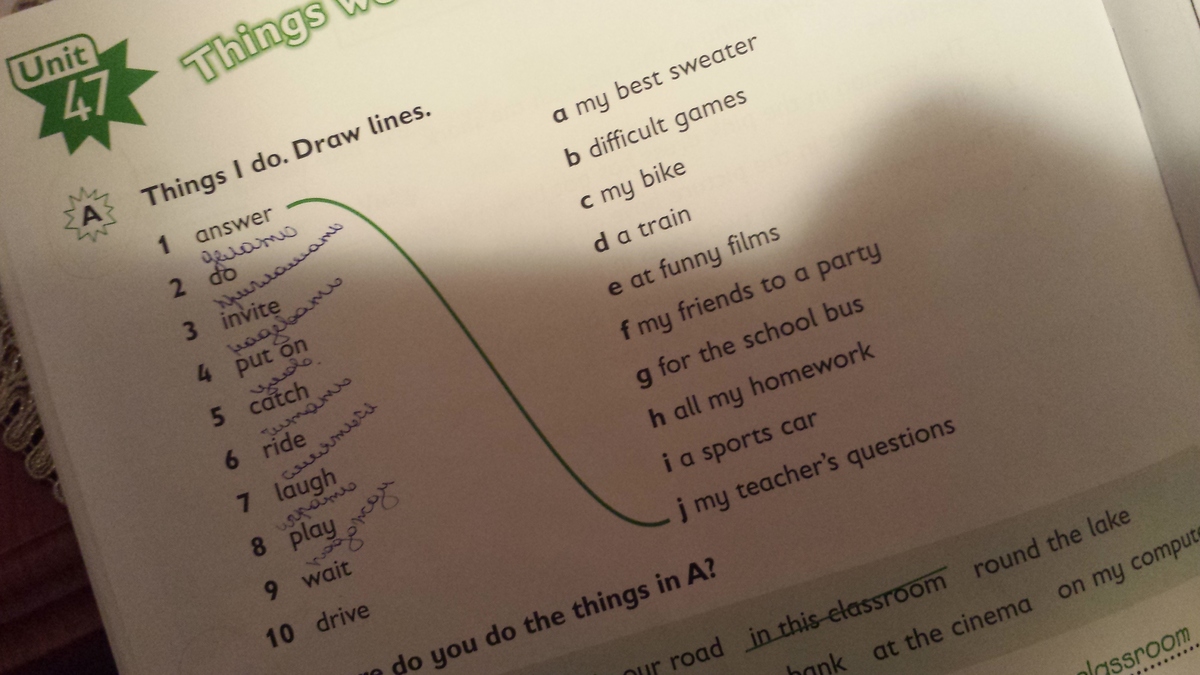 Unit
47
Things wo
A Things I do. Draw lines.
1 answer
2 do
3 invite
4 put on
5 catch
6 ride
7 laugh
8 play
9 wait
10 drive
a my best sweater
b difficult games
c my bike
d a train
e at funny films
f my friends to a party
g for the school bus
h all my homework
i a sports car
j my teacher's questions
do you do the things in A?
our road in this classroom round the lake
bank at the cinema on my compute
classroom